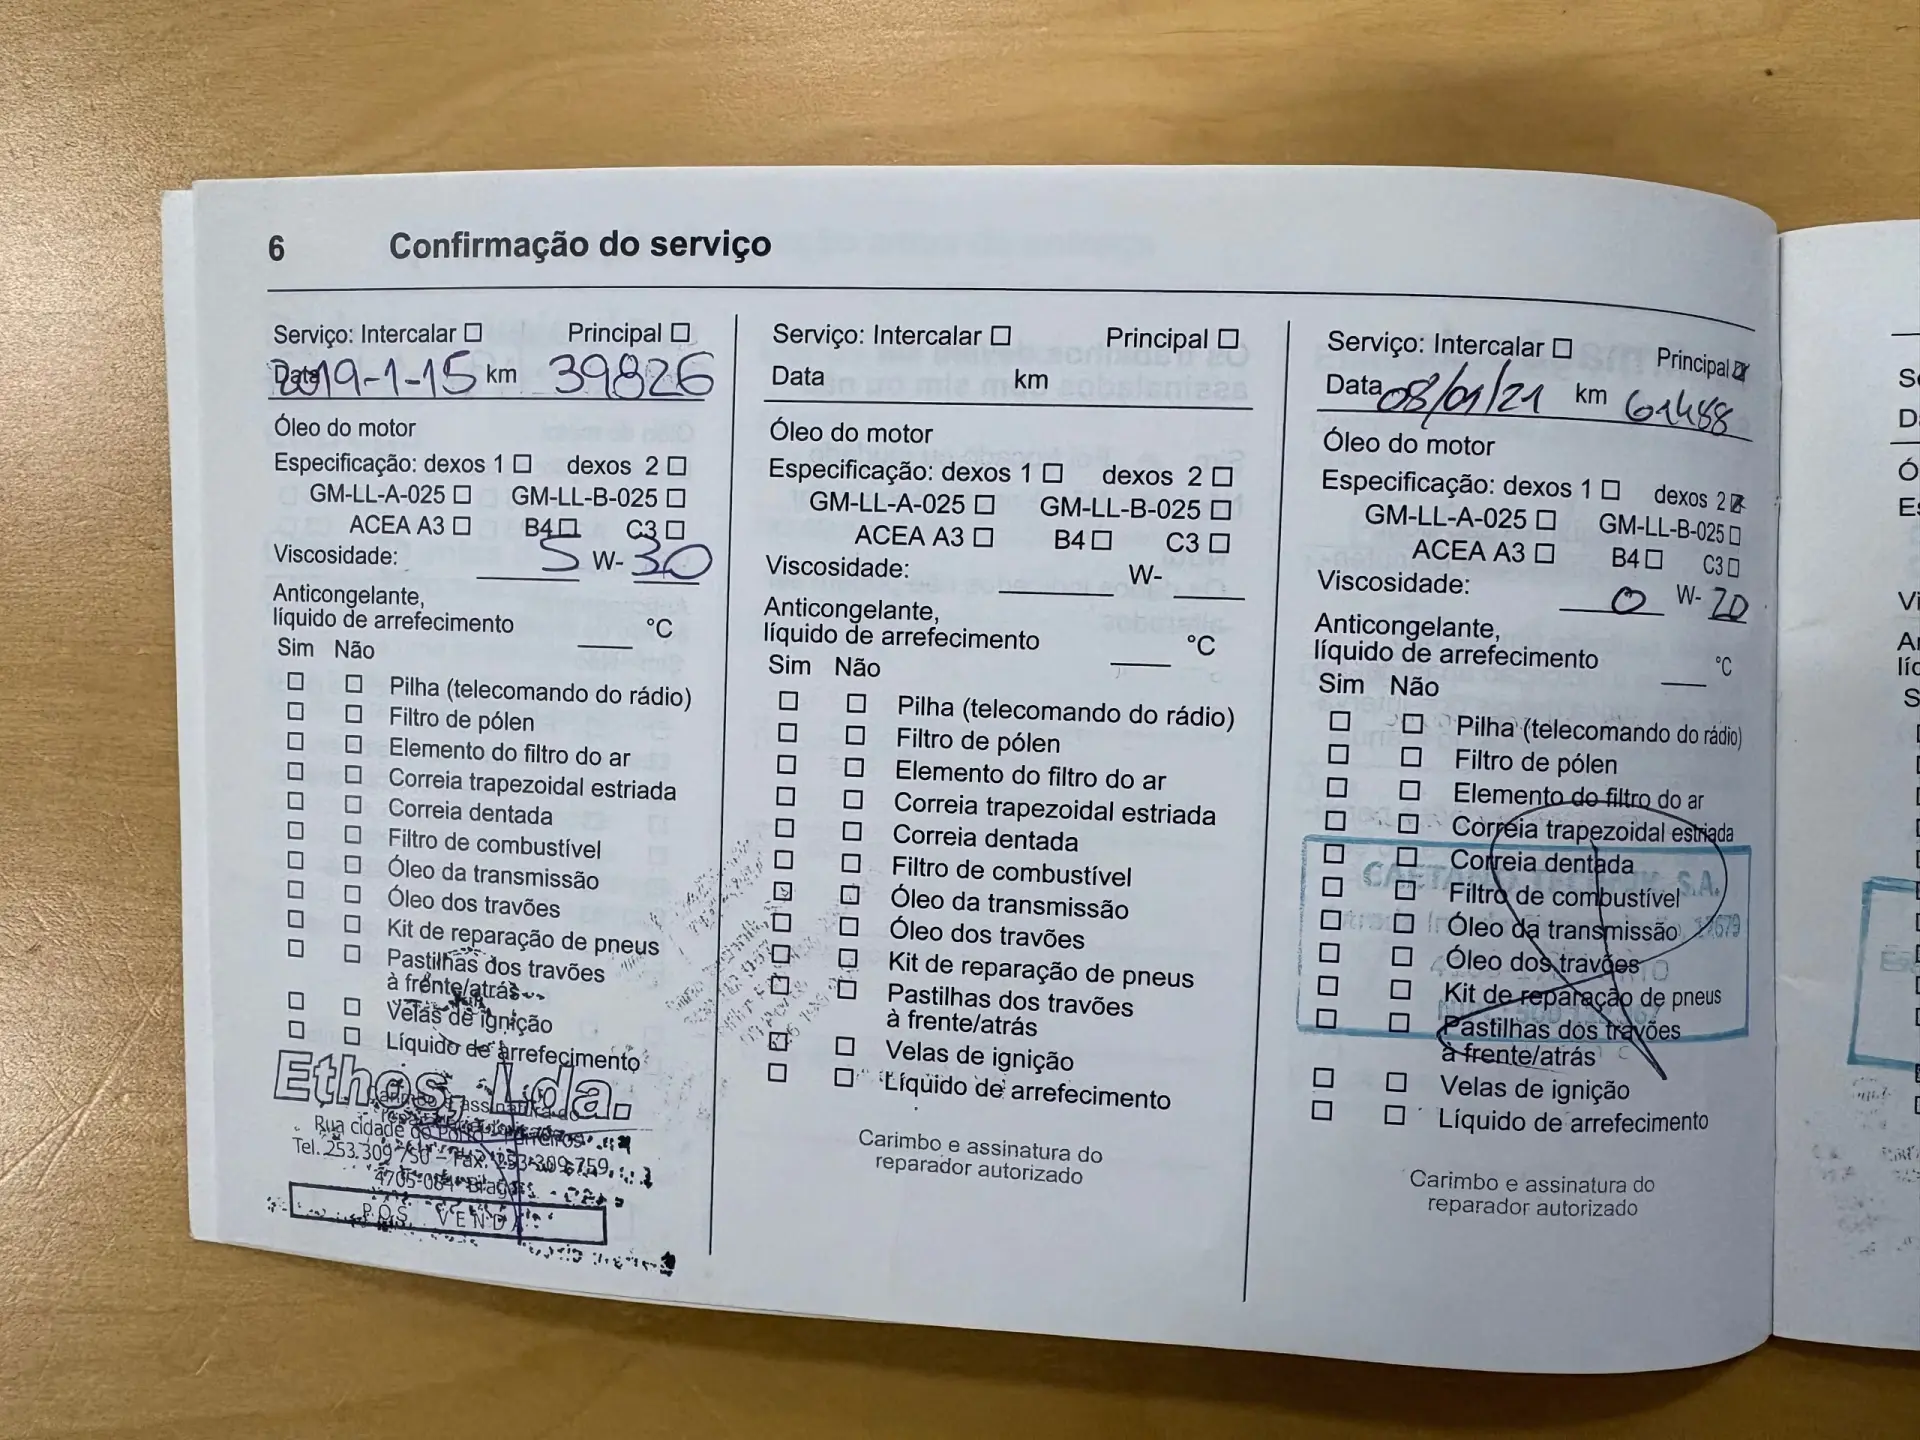 6 Confirmação do serviço
Serviço: Intercalar ☐ Principal ☐
Data 2019-1-15 km 39826
Óleo do motor
Especificação: dexos 1 ☐ dexos 2 ☐
GM-LL-A-025 ☐ GM-LL-B-025 ☐
ACEA A3 ☐ B4 ☐ C3 ☐
Viscosidade: 5 W- 30
Anticongelante,
líquido de arrefecimento °C
Sim Não
☐ ☐ Pilha (telecomando do rádio)
☐ ☐ Filtro de pólen
☐ ☐ Elemento do filtro do ar
☐ ☐ Correia trapezoidal estriada
☐ ☐ Correia dentada
☐ ☐ Filtro de combustível
☐ ☐ Óleo da transmissão
☐ ☐ Óleo dos travões
☐ ☐ Kit de reparação de pneus
☐ ☐ Pastilhas dos travões
à frente/atrás
☐ ☐ Velas de ignição
☐ ☐ Líquido de arrefecimento
Ethos, Lda.
Carimbo e assinatura do
Rua cidade do Porto - Ferreiros
Tel. 253 309 750 - Fax. 253 309 759
4705-084 Braga
PÓS VENDA
Serviço: Intercalar ☐ Principal ☐
Data km
Óleo do motor
Especificação: dexos 1 ☐ dexos 2 ☐
GM-LL-A-025 ☐ GM-LL-B-025 ☐
ACEA A3 ☐ B4 ☐ C3 ☐
Viscosidade: W-
Anticongelante,
líquido de arrefecimento °C
Sim Não
☐ ☐ Pilha (telecomando do rádio)
☐ ☐ Filtro de pólen
☐ ☐ Elemento do filtro do ar
☐ ☐ Correia trapezoidal estriada
☐ ☐ Correia dentada
☐ ☐ Filtro de combustível
☐ ☐ Óleo da transmissão
☐ ☐ Óleo dos travões
☐ ☐ Kit de reparação de pneus
☐ ☐ Pastilhas dos travões
à frente/atrás
☐ ☐ Velas de ignição
☐ ☐ Líquido de arrefecimento
Carimbo e assinatura do
reparador autorizado
Serviço: Intercalar ☐ Principal ☒
Data 08/01/21 km 61488
Óleo do motor
Especificação: dexos 1 ☐ dexos 2 ☒
GM-LL-A-025 ☐ GM-LL-B-025 ☐
ACEA A3 ☐ B4 ☐ C3 ☐
Viscosidade: 0 W- 20
Anticongelante,
líquido de arrefecimento °C
Sim Não
☐ ☐ Pilha (telecomando do rádio)
☐ ☐ Filtro de pólen
☐ ☐ Elemento do filtro do ar
☐ ☐ Correia trapezoidal estriada
☐ ☐ Correia dentada
☐ ☐ Filtro de combustível
☐ ☐ Óleo da transmissão
☐ ☐ Óleo dos travões
☐ ☐ Kit de reparação de pneus
☐ ☐ Pastilhas dos travões
à frente/atrás
☐ ☐ Velas de ignição
☐ ☐ Líquido de arrefecimento
CAETANO S.A.
Carimbo e assinatura do
reparador autorizado